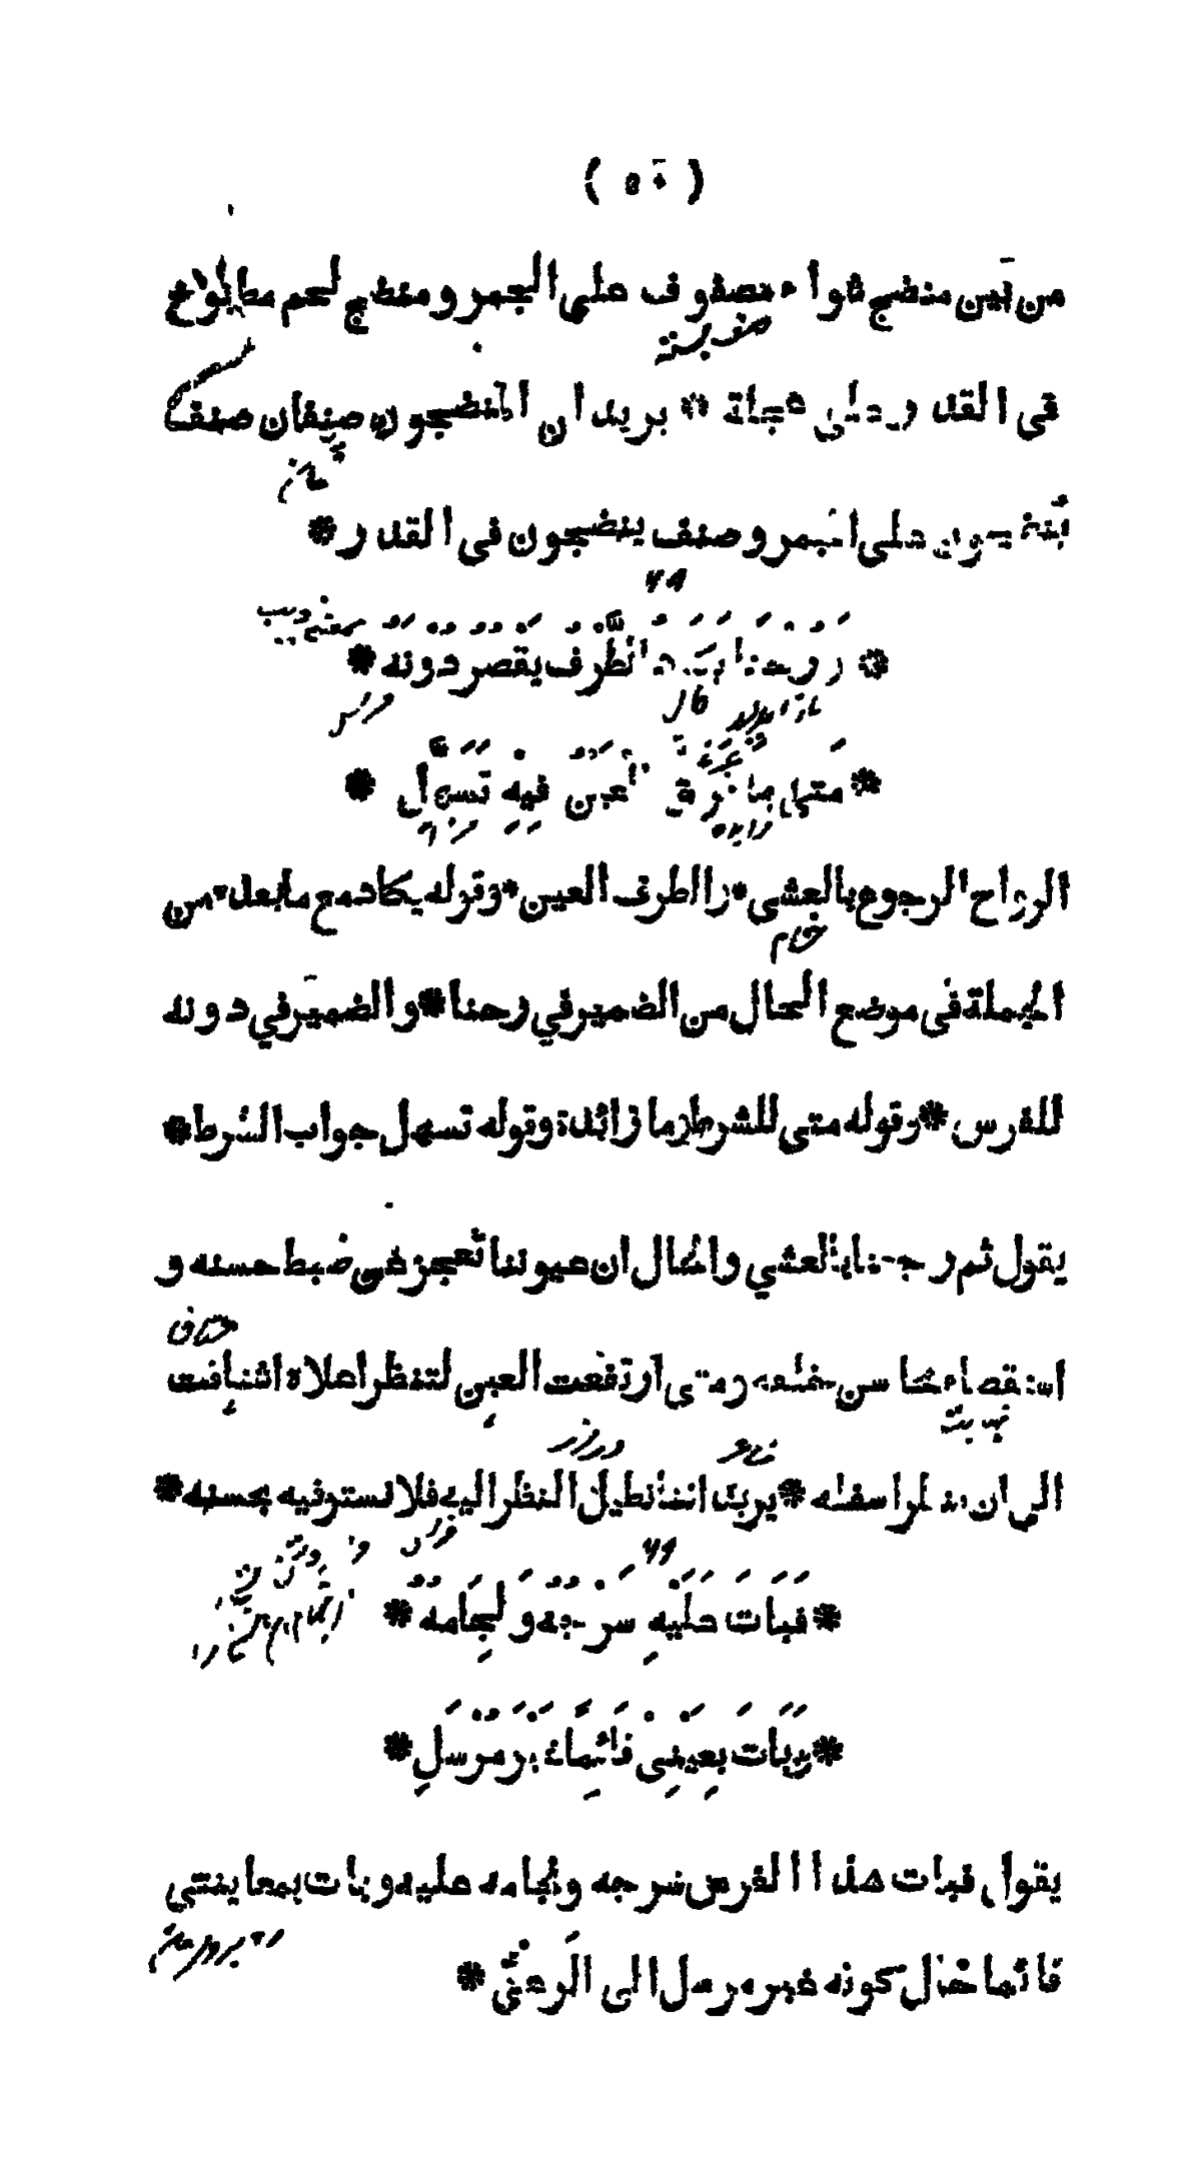 ( ٥٠ )
من بين منضج شواء مصفوف على الجمر و منضج لحم مطبوخ
صف بسته
فى القدر على عجلة * يريد ان المنضجون صنفان صنف
ينضجون على الجمر و صنف ينضجون فى القدر *
٦٨
* وَرُحْنَا يَكَادُ الطَّرْفُ يَقْصُرُ دُوْنَهُ *
* مَتٰى مَا تَرَقَّ الْعَيْنُ فِيْهِ تَسَهَّلِ *
الرواح الرجوع بالعشى * و الطرف العين * و قوله يكاد مع ما بعده من
الجملة فى موضع الحال من الضمير في رحنا * و الضمير في دونه
للفرس * و قوله متى للشرط و ما زائدة و قوله تسهل جواب الشرط *
يقول ثم رجعنا بالعشي و الحال ان عيوننا تعجز عن ضبط حسنه و
استقصاء محاسن خلقه و متى ارتفعت العين لتنظر اعلاه اشتاقت
الى ان ينظر اسفله * يريد اننا نطيل النظر اليه فلا نستوفيه بحسنه *
٦٩
* فَبَاتَ عَلَيْهِ سَرْجُهُ وَ لِجَامُهُ *
* وَبَاتَ بِعَيْنِى قَائِمًا غَيْرَ مُرْسَلِ *
يقول فبات هذا الفرس سرجه و لجامه عليه و بات بمعاينتي
قائما حال كونه غير مرسل الى الرعى *